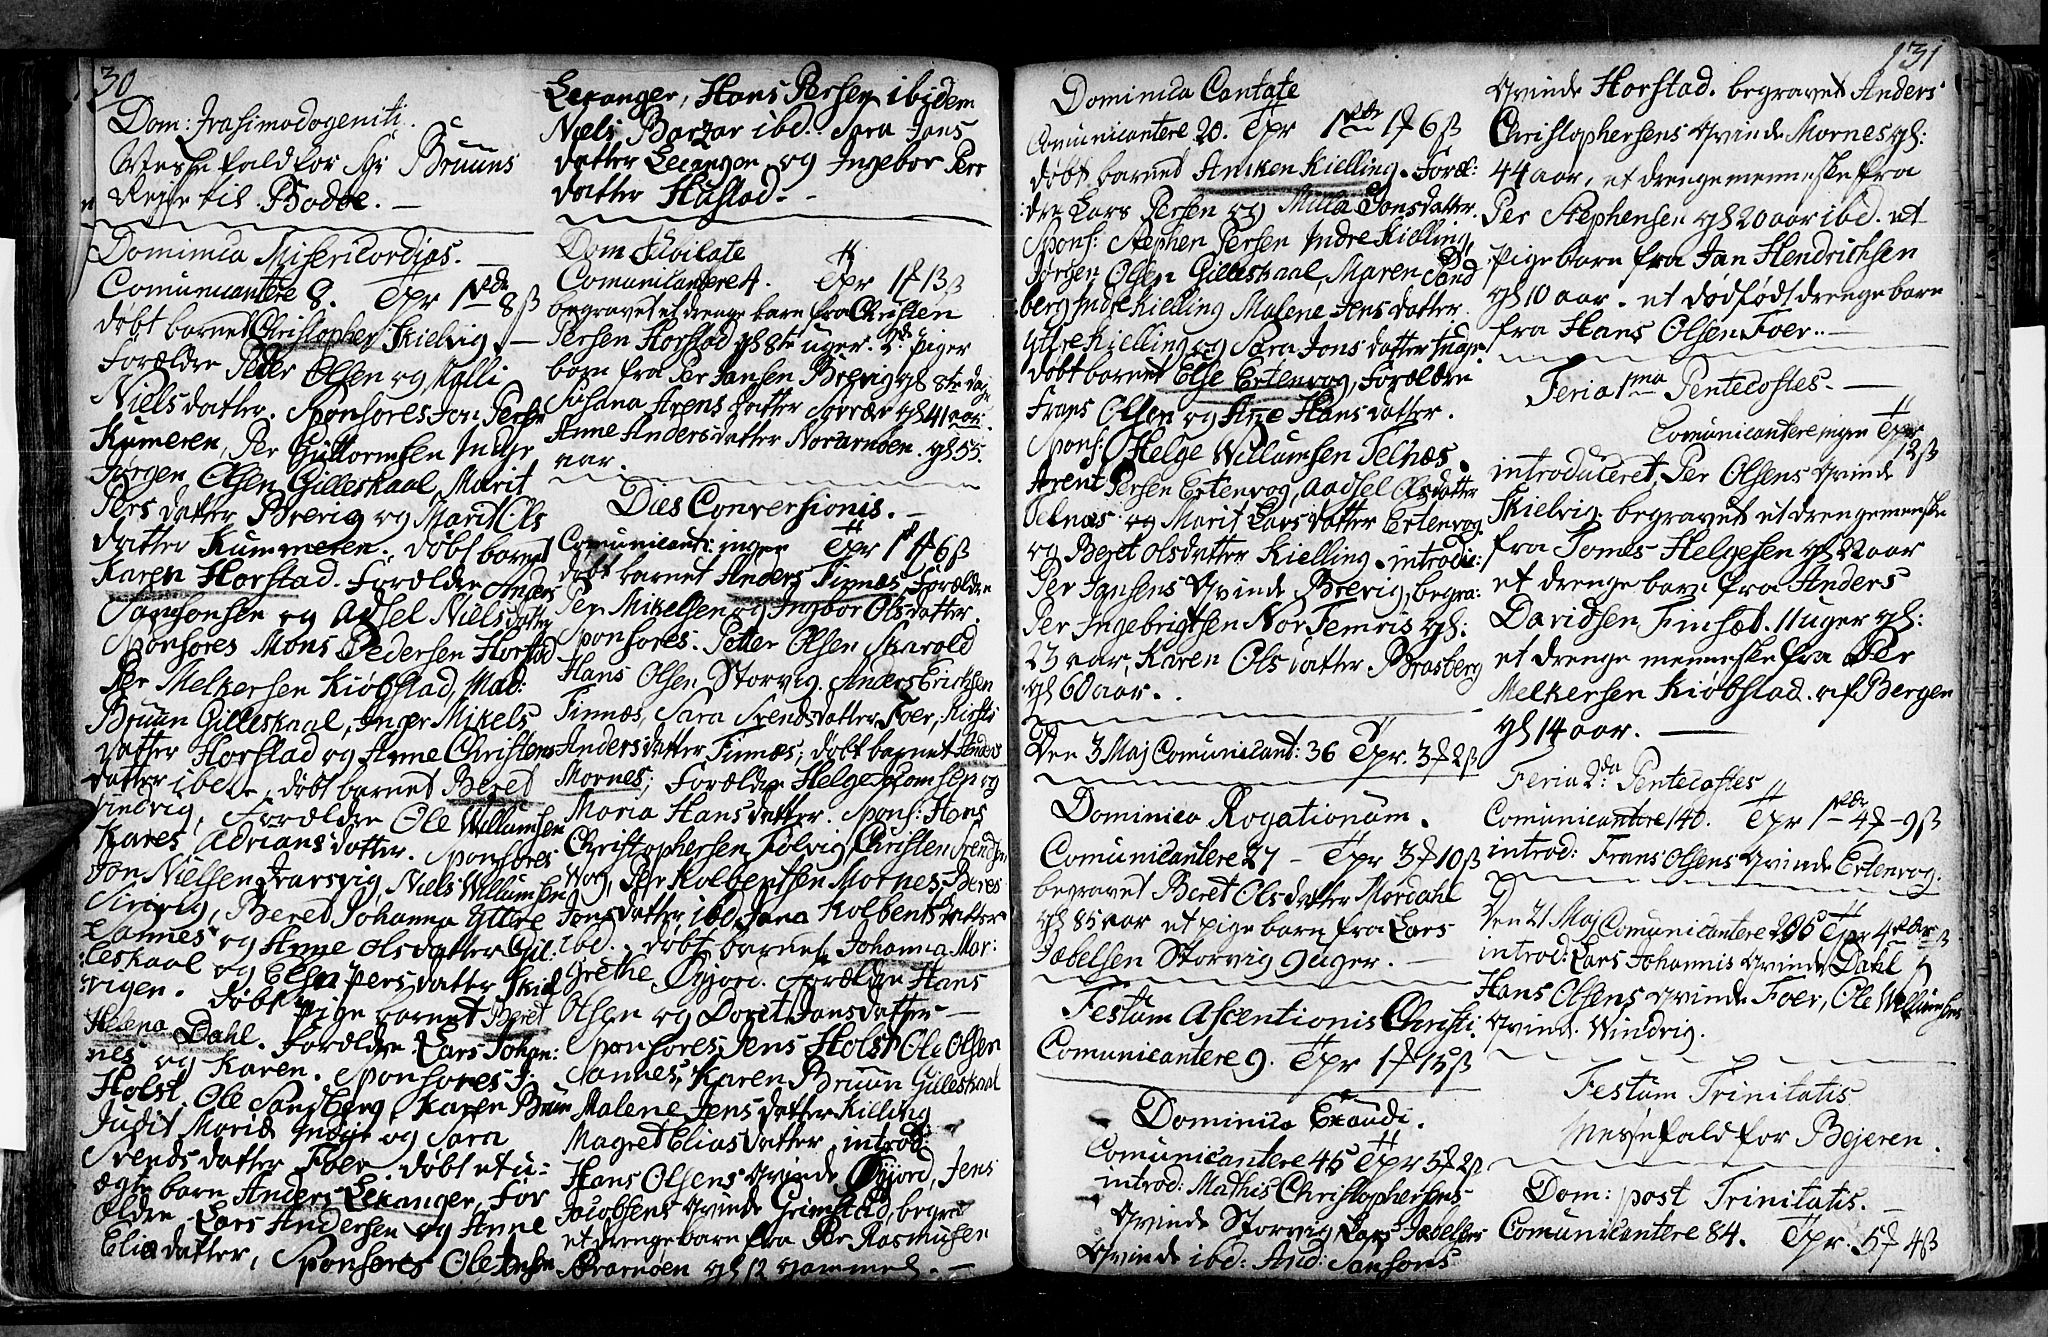 130
Dom: Qvasimodogeniti.
Messefald for Hr Bruuns
Reise til Bodøe. —
Dominica Misericordias. —
Comunicantere 8. Tpr 1 8 ß
døbt barnet Christopher Skielvig. —
forældre Peder Olsen og Malli
Nielsdatter. Sponsores Jon Persen
Kumeren, Per Guttormsen Indyr
Jørgen Olsen Gilleskaal, Marit
Persdatter Brevig og Marit Ols
datter Kummeren. døbt barnet
Karen Horstad. forældre Anders
Samsonsen og Adsel Nielsdatter
Sponsores Mons Pedersen Horstad
Per Melkersen Kiøbstad, Mad:
Bruun Gilleskaal, Inger Mikels
datter Horstad og Anne Christens
datter ibd. døbt barnet Beret
Vindvig, forældre Ole Willumsen
Kares Adriansdatter. Sponsores
Jon Nielsen, Niels Willumsen
Beret Johanna Yttre
Sannes og Anne Olsdatter Gil:
leskaal og Elsa Persdatter Skiel
vigen. Døbt pige barnet Beret
Helena Dahl. forældre Lars Johan:
nes og Karen. Sponsores J:
Holst, Ole Sandberg, Karen Bruun
Judit Maria Indyr og Sara
Svends datter Foer. døbt et u:
ægte barn Anders Lexanger, for
ældre Lars Andersen og Anne
Elia datter, Sponsores Ole Jensen
Lexanger, Hans Persen ibidem
Niels Barzar ibd. Sara Jons
datter Lexanger og Ingebor Pers
datter Hustad. —
Dom Jubilate
Comunicantere 4. Tpr 1 13 ß
begravet et drenge barn fra Christen
Persen Horstad gl 8te uger. 2de piger
børn fra Per Jansen Brevig gl 8te dage
Susana Arens datter Sørrær gl 41 aar.
Anne Andersdatter Norarnøen. gl 55.
aar.
Dies Conversionis. —
Comunicant: ingen Tpr 1 6 ß
døbt barnet Anders Finnæs, forældre
Per Mikelsen og Ingbor Olsdatter.
Sponsores. Petter Olsen Skavold
Hans Olsen Storvig. Anders Erichsen
Finnæs, Sara Svendsdatter Foer, Kirsti
Andersdatter Finnæs; døbt barnet Anders
Mornes; forældre Helge Thomsen og
Maria Hansdatter. Spons: Hans
Christophersen Følvig, Christen Svendsen
Vog, Per Kolbentsen Mornes, Beres
Jonsdatter ibd, Jana Kolbents datter
ibd. døbt barnet Johanna Mar:
grethe Øyjord. forældre Hans
Olsen og Doret Jansdatter —
Sponsores Jens Holst Ole Olsen
Sannes, Karen Bruun Gilleskaal
Malene Jens datter Killing
Magret Elias datter, introd:
Hans Olsens Qvinde Øyjord, Jens
Jacobsens Qvinde Grimstad, begra:
et drenge barn fra Per Rasmusen
Sørarnøen gl 12 gammel. —
131
Dominica Cantate
Comunicantere 20. Tpr 1 1 6 ß
døbt barnet Anken Kielling. Foræl:
dre Lars Persen og Milla Jonsdatter.
Spons: Stephen Persen Indre Kielling,
Jørgen Olsen Gilleskaal, Maren Sand
berg Indre Kielling Malene Jensdatter
Yttre Kielling og Sara Jonsdatter Indyr
døbt barnet Else Ertenvog, forældre
Frans Olsen og Anne Hansdatter.
Spons: Helge Willumsen Telnæs.
Arent Persen Ertenvog, Aadsel Olsdatter
Telnæs og Marit Larsdatter Ertenvog
og Beret Olsdatter Kielling. introdu:
Per Jansens Qvinde Brevig, begra:
Per Ingebrigtsen Nor Femris gl:
23 aar, Karen Olsdatter Brasberg
gl 60 aar.
Den 3 Maj Comunicant: 36 Tpr. 3 2 ß
Dominica Rogationum.
Comunicantere 27 — Tpr 3 10 ß
begravet Beret Olsdatter Mordahl
gl 85 aar et pige barn fra Lars
Jæbelsen Storvig 9 uger. —
Festum Ascentionis Christi.
Comunicantere 9. Tpr 1 15 ß
Dominica Exaudi.
Comunicantere 45 Tpr 3 2 ß
introd: Mathis Christophersens
Qvinde Storvig, Lars Jæbelsens
Qvinde ibd: And: Samsons
Qvinde Horstad. begravet Anders
Christophersens Qvinde Mornes gl:
44 aar, et drengemenneske fra
Per Stephensen gl 20 aar ibd. et
pige barn fra Jan Hendrichsen
gl 10 aar. et dødfødt drenge barn
fra Hans Olsen Foer. —
Feria 1ma Pentecostes. —
Comunicantere ingen Tpr 12 ß
introduceret, Per Olsens Qvinde
Skielvig. begravet et drengemenske
fra Tomes Helgesen gl 22 aar
et drenge barn fra Anders
Davidsen Finsæt. 11 uger gl:
et drenge menneske fra Per
Melkersen Kiøbstad. af Bergen
gl 14 aar. —
Feria 2da Pentecostes
Comunicantere 140. Tpr 1 4 9 ß
introd: Frans Olsens Qvinde Ertenvog.
Den 21 Maj Comunicantere 206 Tpr 4 ß
introd: Lars Johannis Qvinde Dahl
Hans Olsens Qvinde Foer, Ole Willumsens
Qvinde Windvig.
Festum Trinitatis
Messefald for Bejeren.
Dom: post Trinitatis. —
Comunicantere 84. Tpr. 5 4 ß